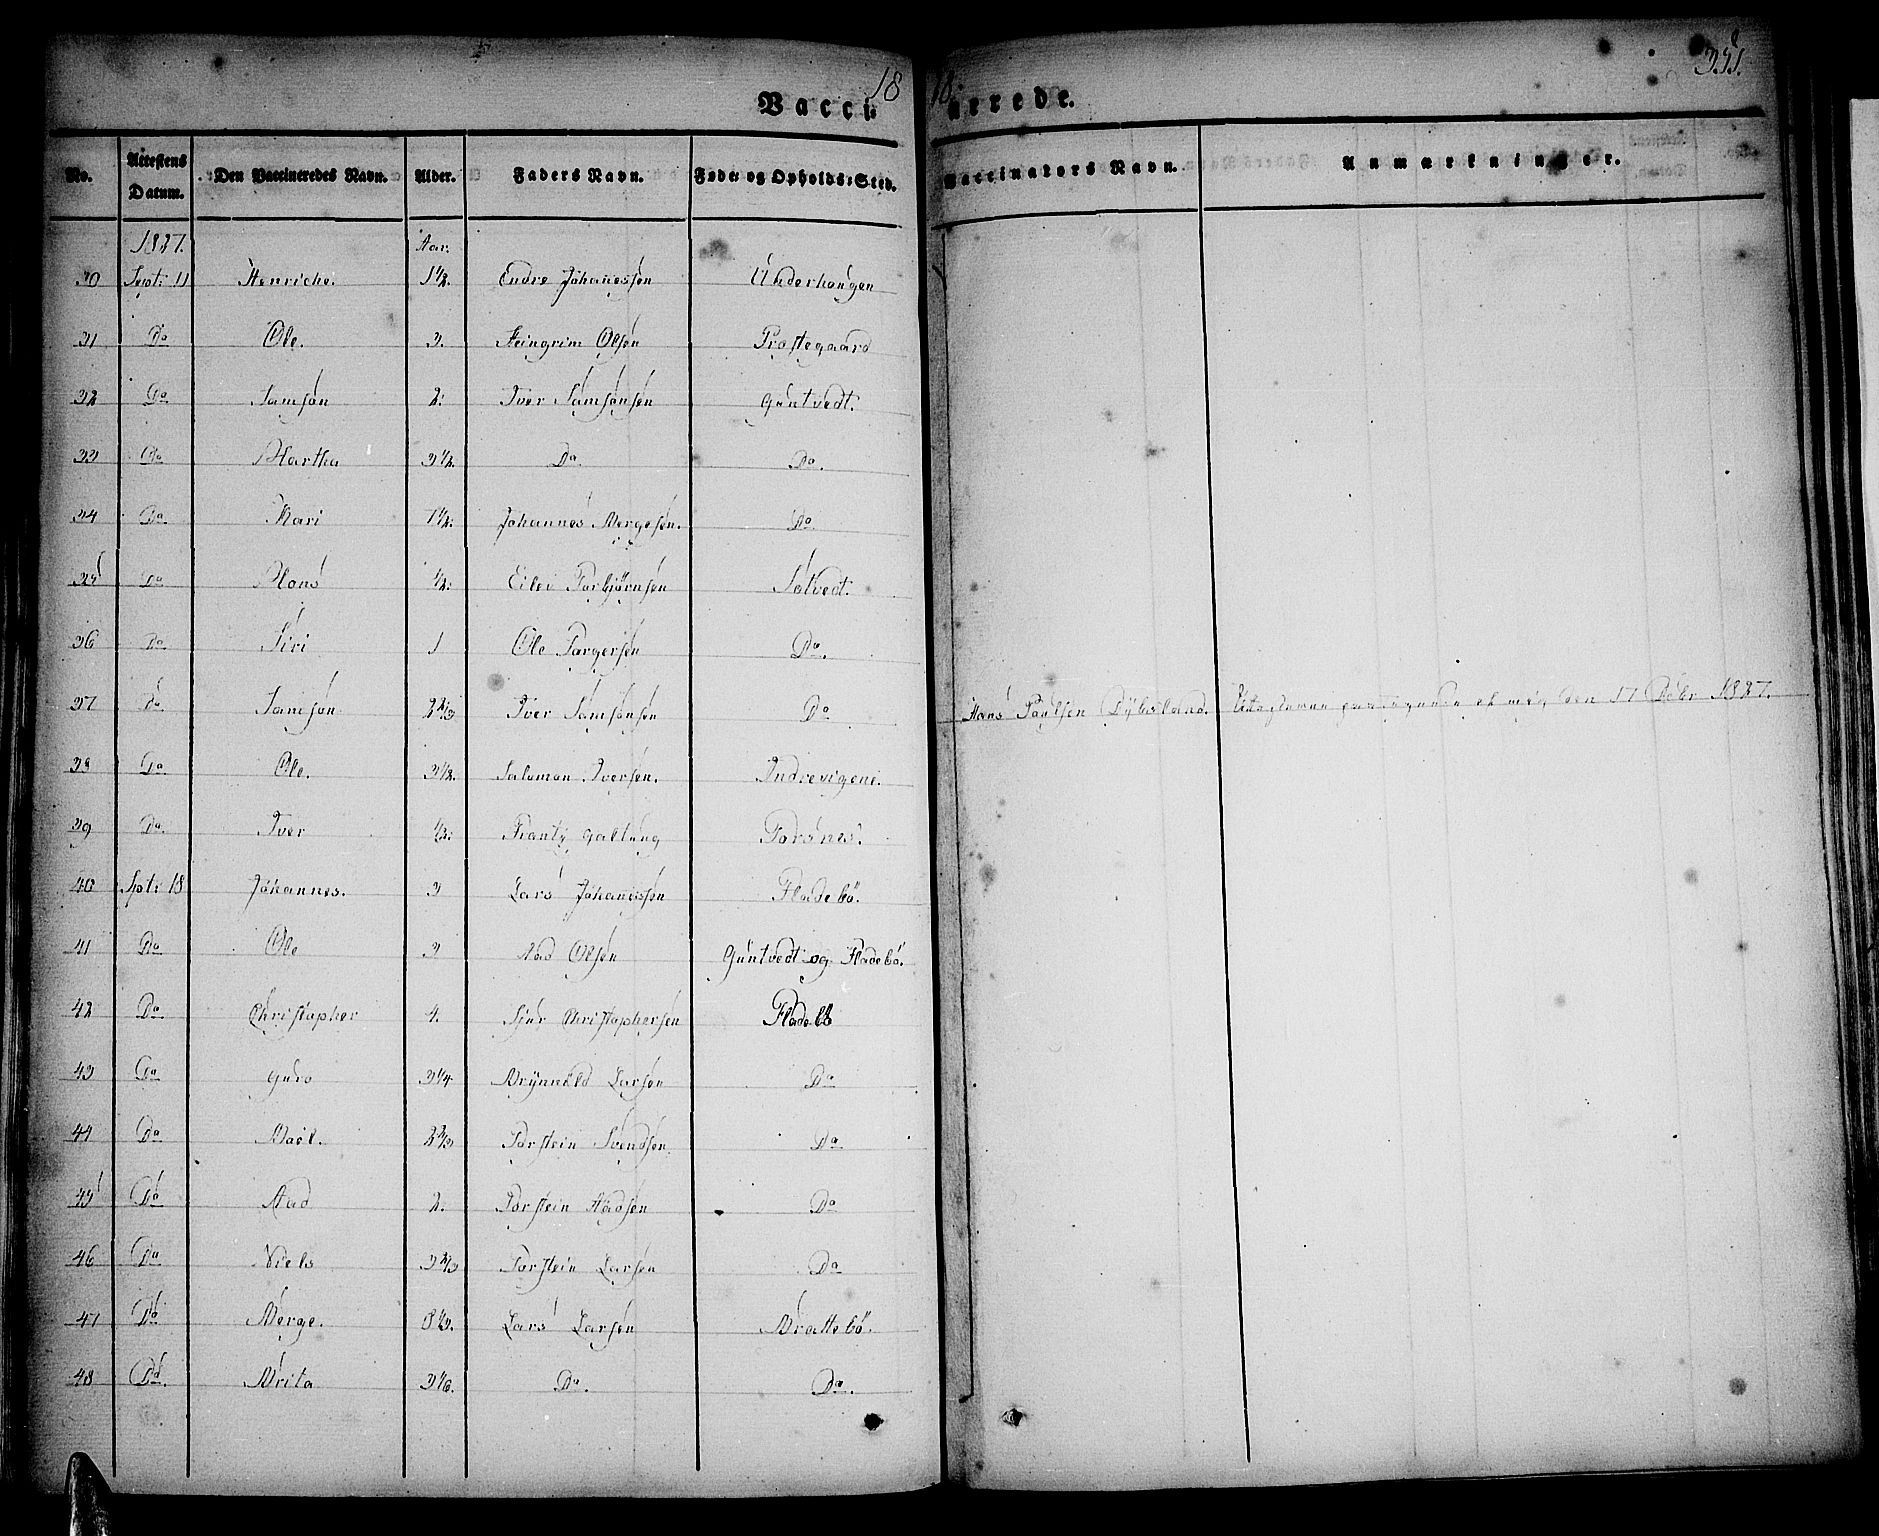 18 18
351.
Vacci: nerede.
No. Attestens Datum. Den Vaccineredes Navn. Alder. Faders Navn. Føde: og Opholds:Sted. Vaccinators Navn. Anmærkninger.
1827. Aar.
30 Sept: 11 Henriche. 1 1/2. Endre Johannessen Underhougen
31 Do Ole. 3. Steingrim Olsen Prostegaard
32 Do Samson 2. Iver Samsonsen Guntvedt.
33 Do Martha 3 1/2. Do. Do.
34 Do Kari 1 1/2. Johannes Bergesen. Do
35 Do Hans 1/2. Eilev Torbjörnsen Sotvedt.
36 Do Siri 1 Ole Torgersen Do.
37 Do Samson 2 2/3 Iver Samsonsen Do Hans Poulsen Dybsland. den 17 Dcbr 1827.
38 Do Ole. 3 1/2. Salamon Iversen. Indrevigene.
39 Do. Iver 1/2. Frantz Galtung Torsnes.
40 Spt: 18 Johannes. 3 Lars Johannessen Fladebö.
41 Do Ole 3 Aad Olsen Guntvedt og Fladebö.
42 Do Christopher 4. Sjur Christophersen Fladebö
43 Do Guro 3 1/4 Brynnild Larsen Do
44 Do 2 2/3 Torstein Svendsen. Do
45 Do Aad 2. Torstein Aadsen Do
46 Do Niels 3 2/3 Torstein Larsen Do
47 Do Berge. 8 1/2. Lars Larsen Brattebö.
48 Do. Brita 3 1/6. Do. Do.